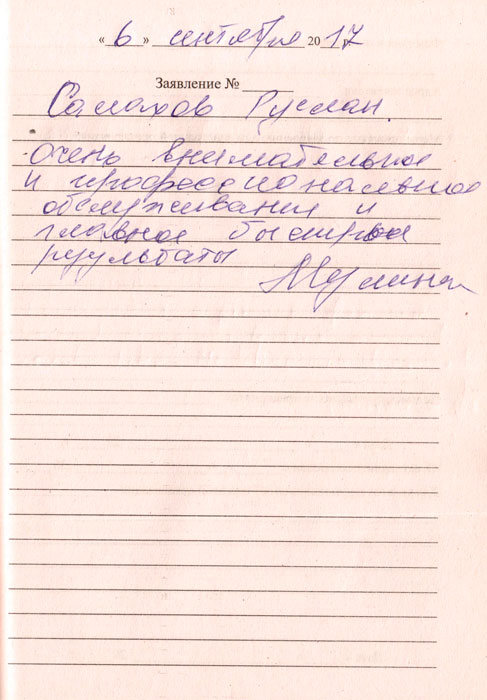 «6» сентября 2017 г.
Заявление №
Салахов Руслан
очень внимательное
и профессиональное
обслуживание и
главное быстрые
результаты